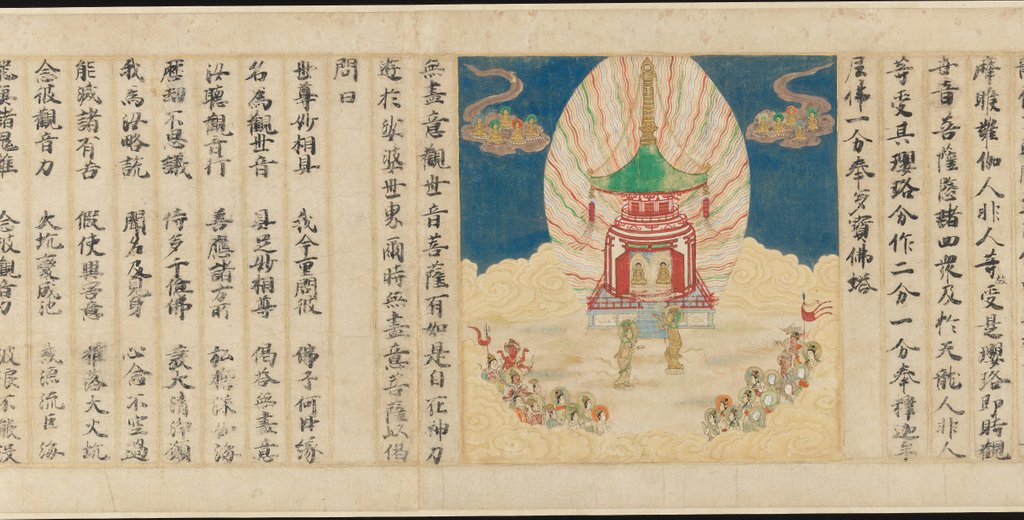 摩睺羅伽人非人等故受是瓔珞即時觀
世音菩薩愍諸四衆及於天龍人非人
等受其瓔珞分作二分一分奉釋迦牟
尼佛一分奉多寳佛塔
無盡意觀世音菩薩有如是自在神力
遊於娑婆世界爾時無盡意菩薩以偈
問曰
世尊妙相具 我今重問彼 佛子何因緣
名為觀世音 具足妙相尊 偈答無盡意
汝聽觀音行 善應諸方所 弘誓深如海
歷劫不思議 侍多千億佛 發大清淨願
我為汝略說 聞名及見身 心念不空過
能滅諸有苦 假使興害意 推落大火坑
念彼觀音力 火坑變成池 或漂流巨海
諸鬼難 念彼觀音力 波浪不能沒